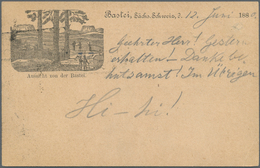 Bastei, Sächs. Schweiz, d. 12 Juni 188
Geehrter Herr! Gestern
erhalten! — Danke be
hutsamst! Im Übrigen
Hi - hi!
Aussicht von der Bastei.